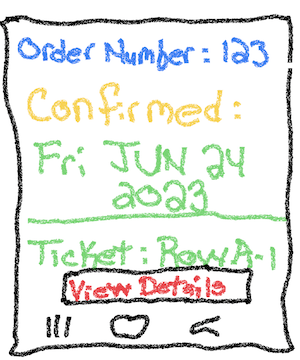 Order Number: 123
Confirmed:
Fri JUN 24
2023
Ticket: Row A-1
View Details